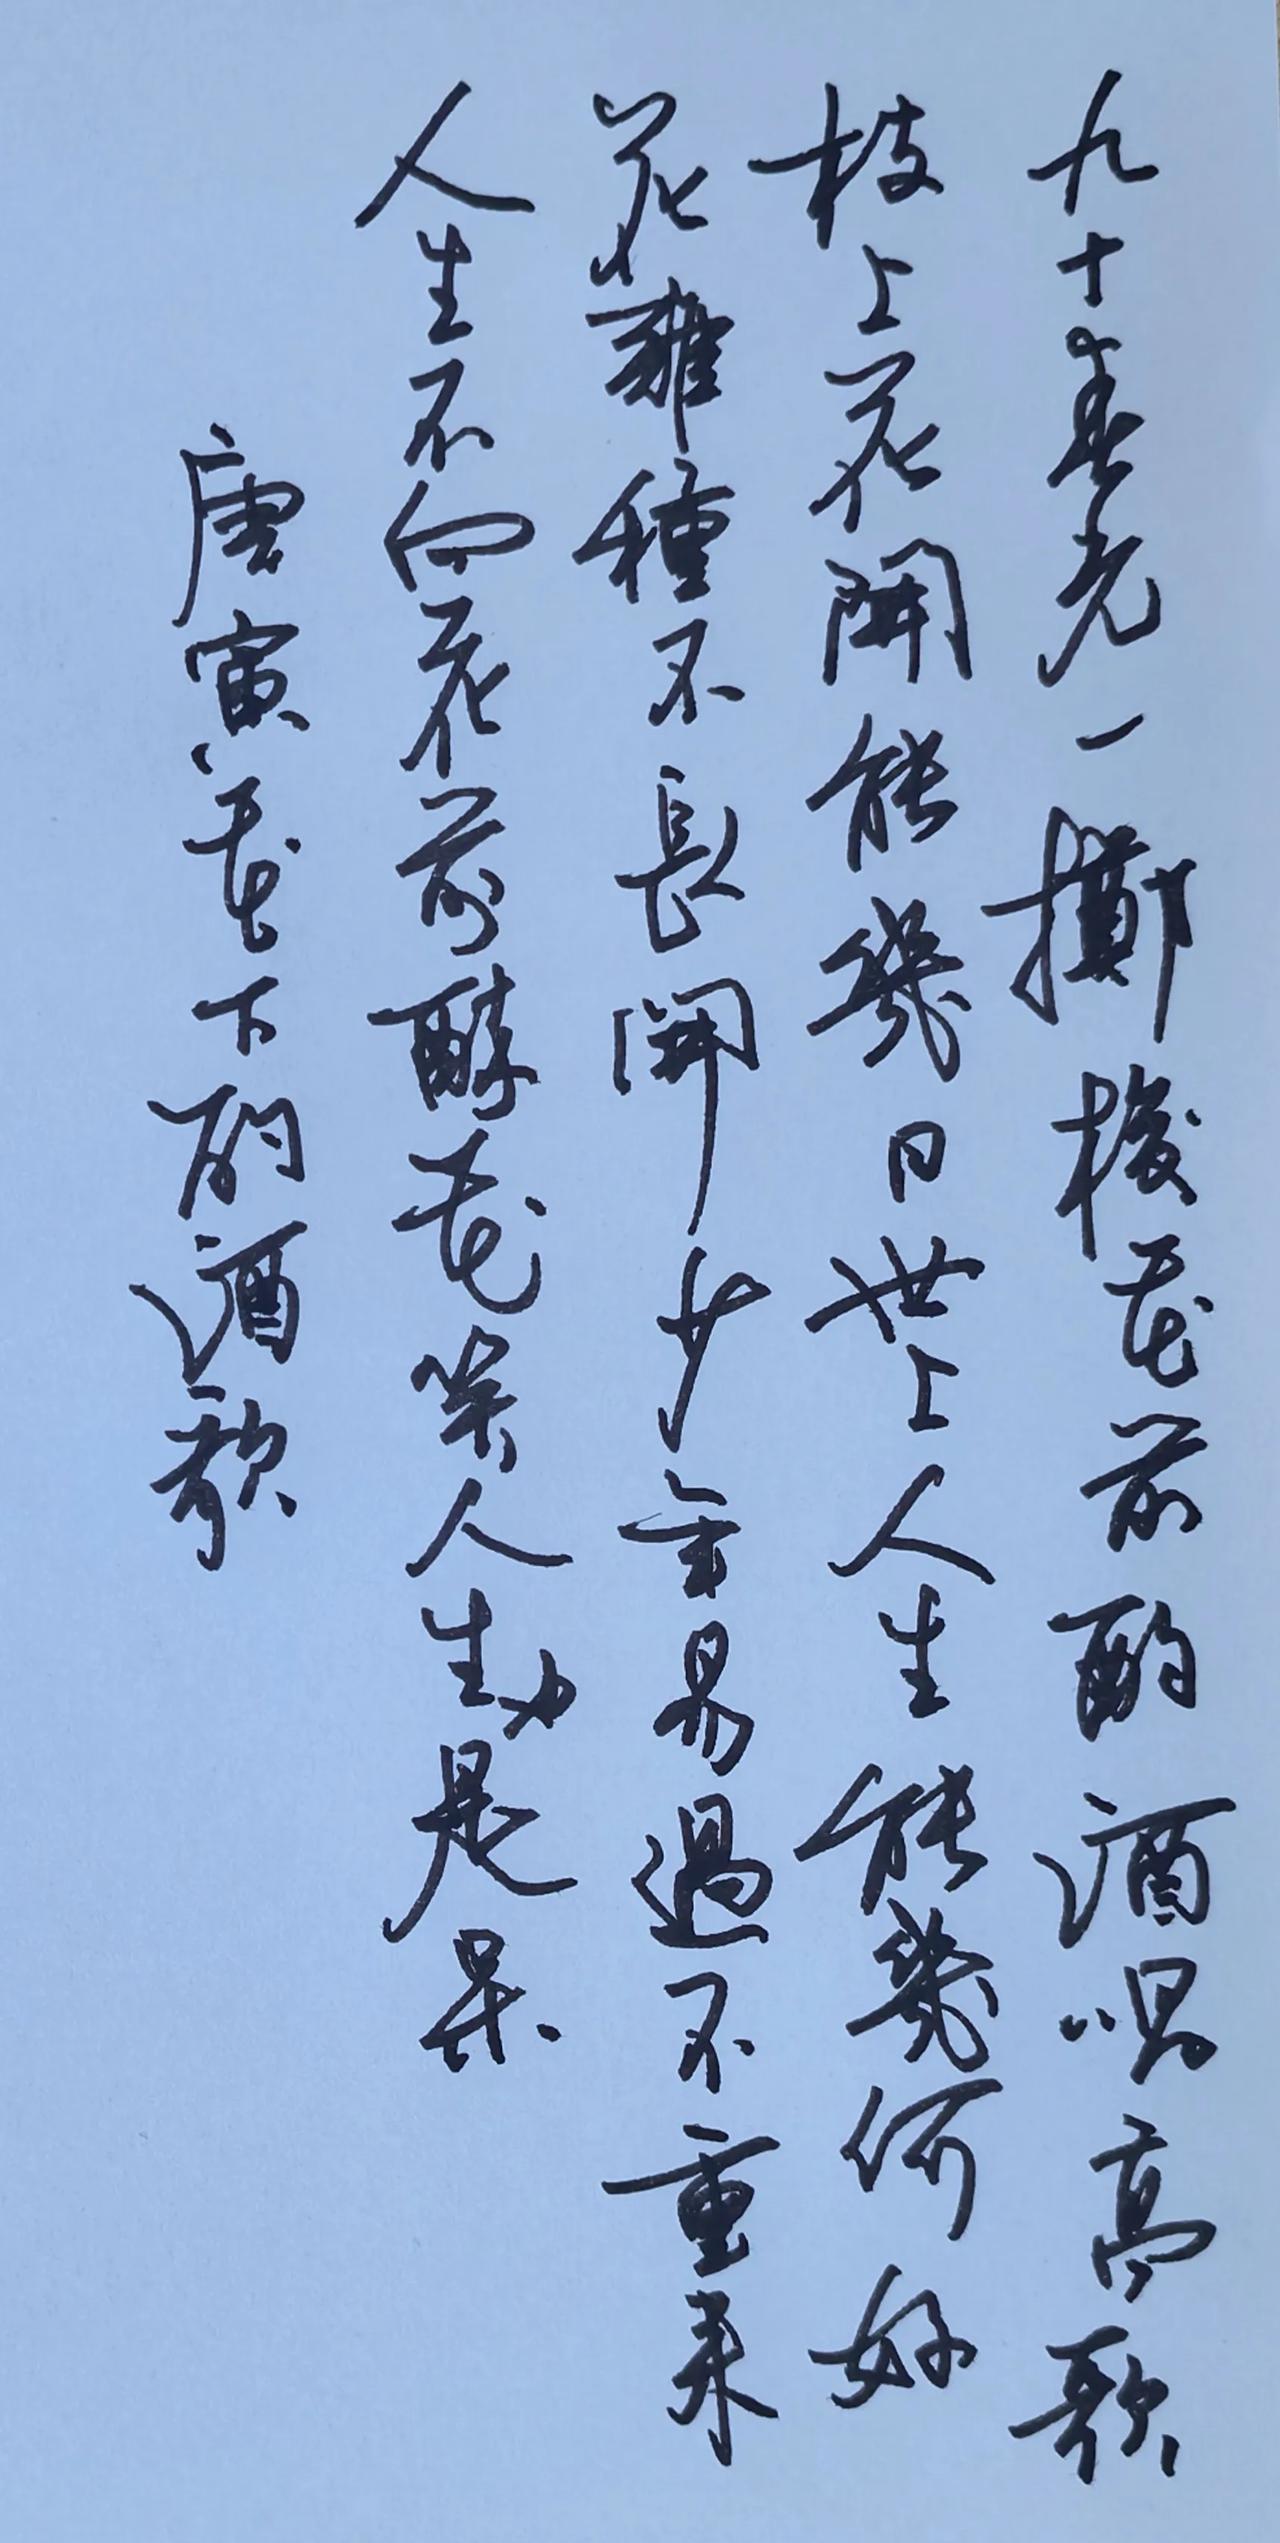 九十春光一擲梭花前酌酒唱高歌
枝上花開能幾日世上人生能幾何好
花難種不長開少年易過不重來
人生不向花前醉花笑人生也是呆
唐寅花下酌酒歌